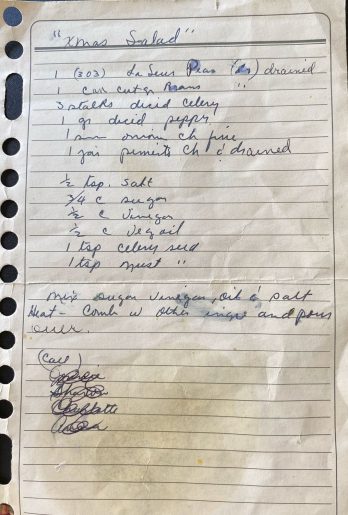 "Xmas Salad"
1 (303) La Seur Peas drained
1 can cut gr Beans "
3 stalks diced celery
1 gr diced pepper
1 sm onion ch fine
1 jar pimento ch & drained
½ tsp. salt
¾ c sugar
½ c vinegar
½ c veg oil
1 tsp celery seed
1 tsp must "
Mix sugar vinegar, oil & salt
Heat - Comb w other ingr and pour
over.
(Call)
Charlotte